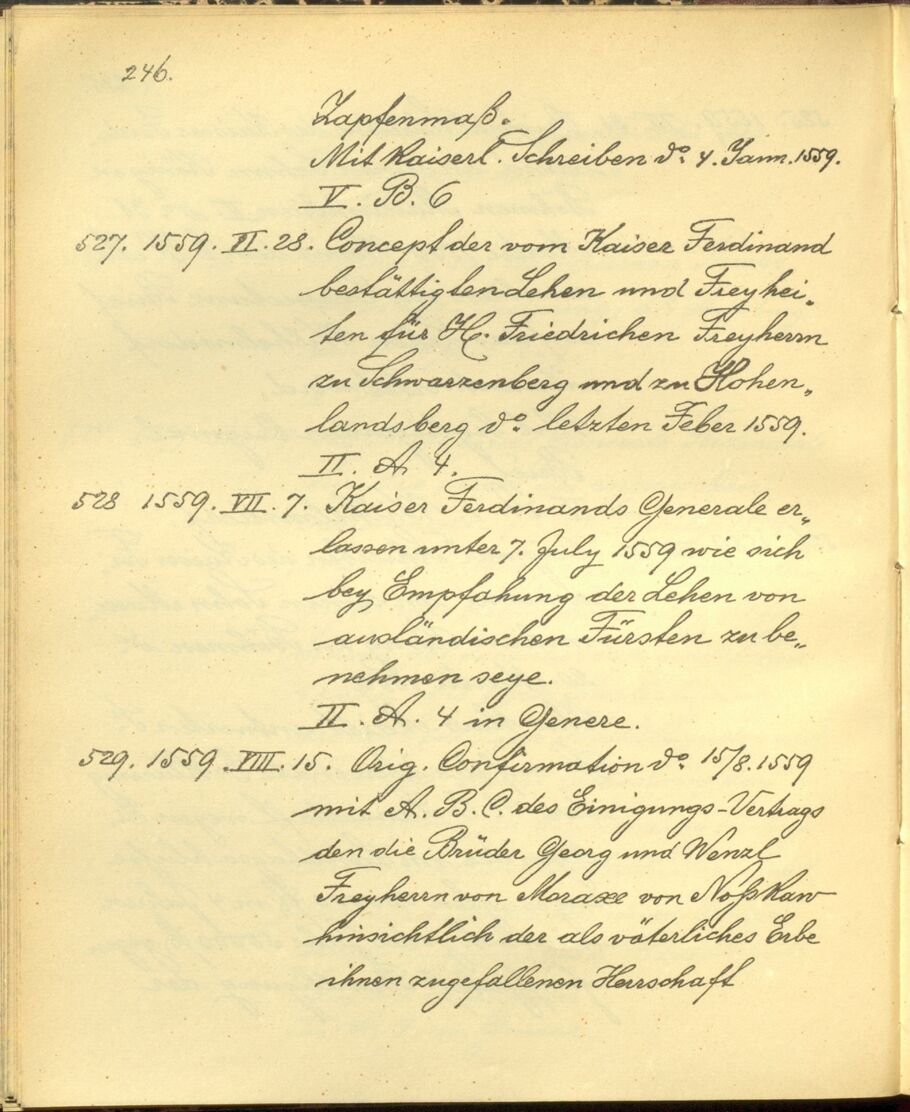 246.
Zapfenmaß.
Mit Kaiserl. Schreiben do. 4. Jann. 1559.
V. B. 6
527. 1559. VI. 28. Concept der vom Kaiser Ferdinand
bestättigten Lehen und Freyhei„
ten für H. Friedrichen Freyherrn
zu Schwarzenberg und zu Hohen„
landsberg do. letzten Feber 1559.
II. A 4.
528 1559. VII. 7. Kaiser Ferdinands Generale er„
lassen unter 7. July 1559 wie sich
bey Empfahung der Lehen von
ausländischen Fürsten zu be„
nehmen seye.
II. A. 4 in Genere.
529. 1559. VIII. 15. Orig. Confirmation do. 15/8. 1559
mit A. B. C. des Einigungs-Vertrags
den die Brüder Georg und Wenzl
Freyherrn von Moraxe von Noßkaw
hinsichtlich der als väterliches Erbe
ihnen zugefallenen Herrschaft